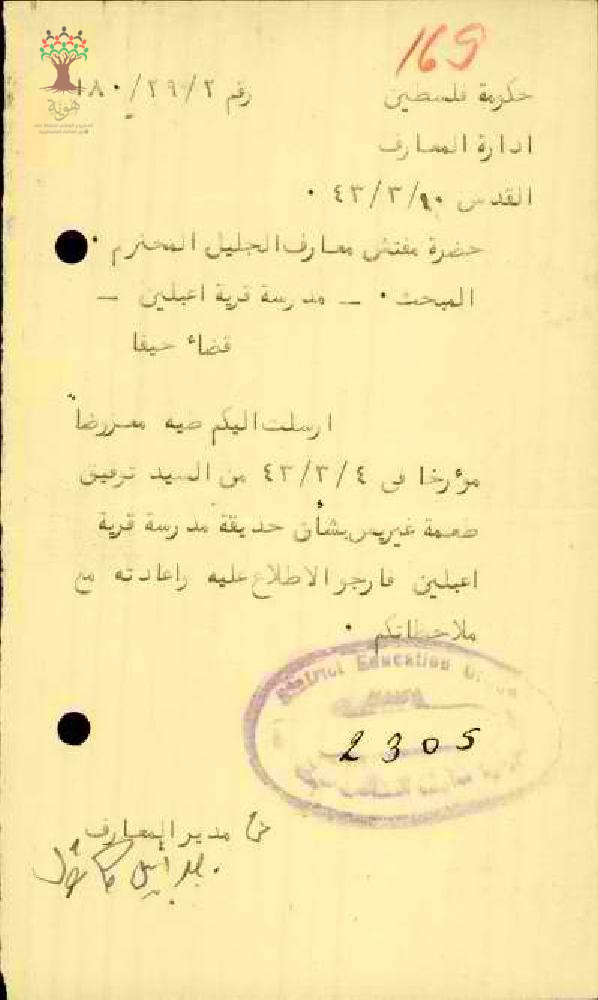 169
حكومة فلسطين
رقم ١٨٠/٢٩/٢
هوية
ادارة المعارف
القدس ١٠/٣/٤٣ ٠
حضرة مفتش معارف الجليل المحترم ٠
المبحث ٠ ــ مدرسة قرية اعبلين ــ
قضاء حيفا
ارسلت اليكم طيه معروضا
مؤرخا في ٤/٣/٤٣ من السيد توفيق
طعمة غيريس بشأن حديقة مدرسة قرية
اعبلين فارجو الاطلاع عليه واعادته مع
ملاحظاتكم ٠
District Education
2305
مدير المعارف